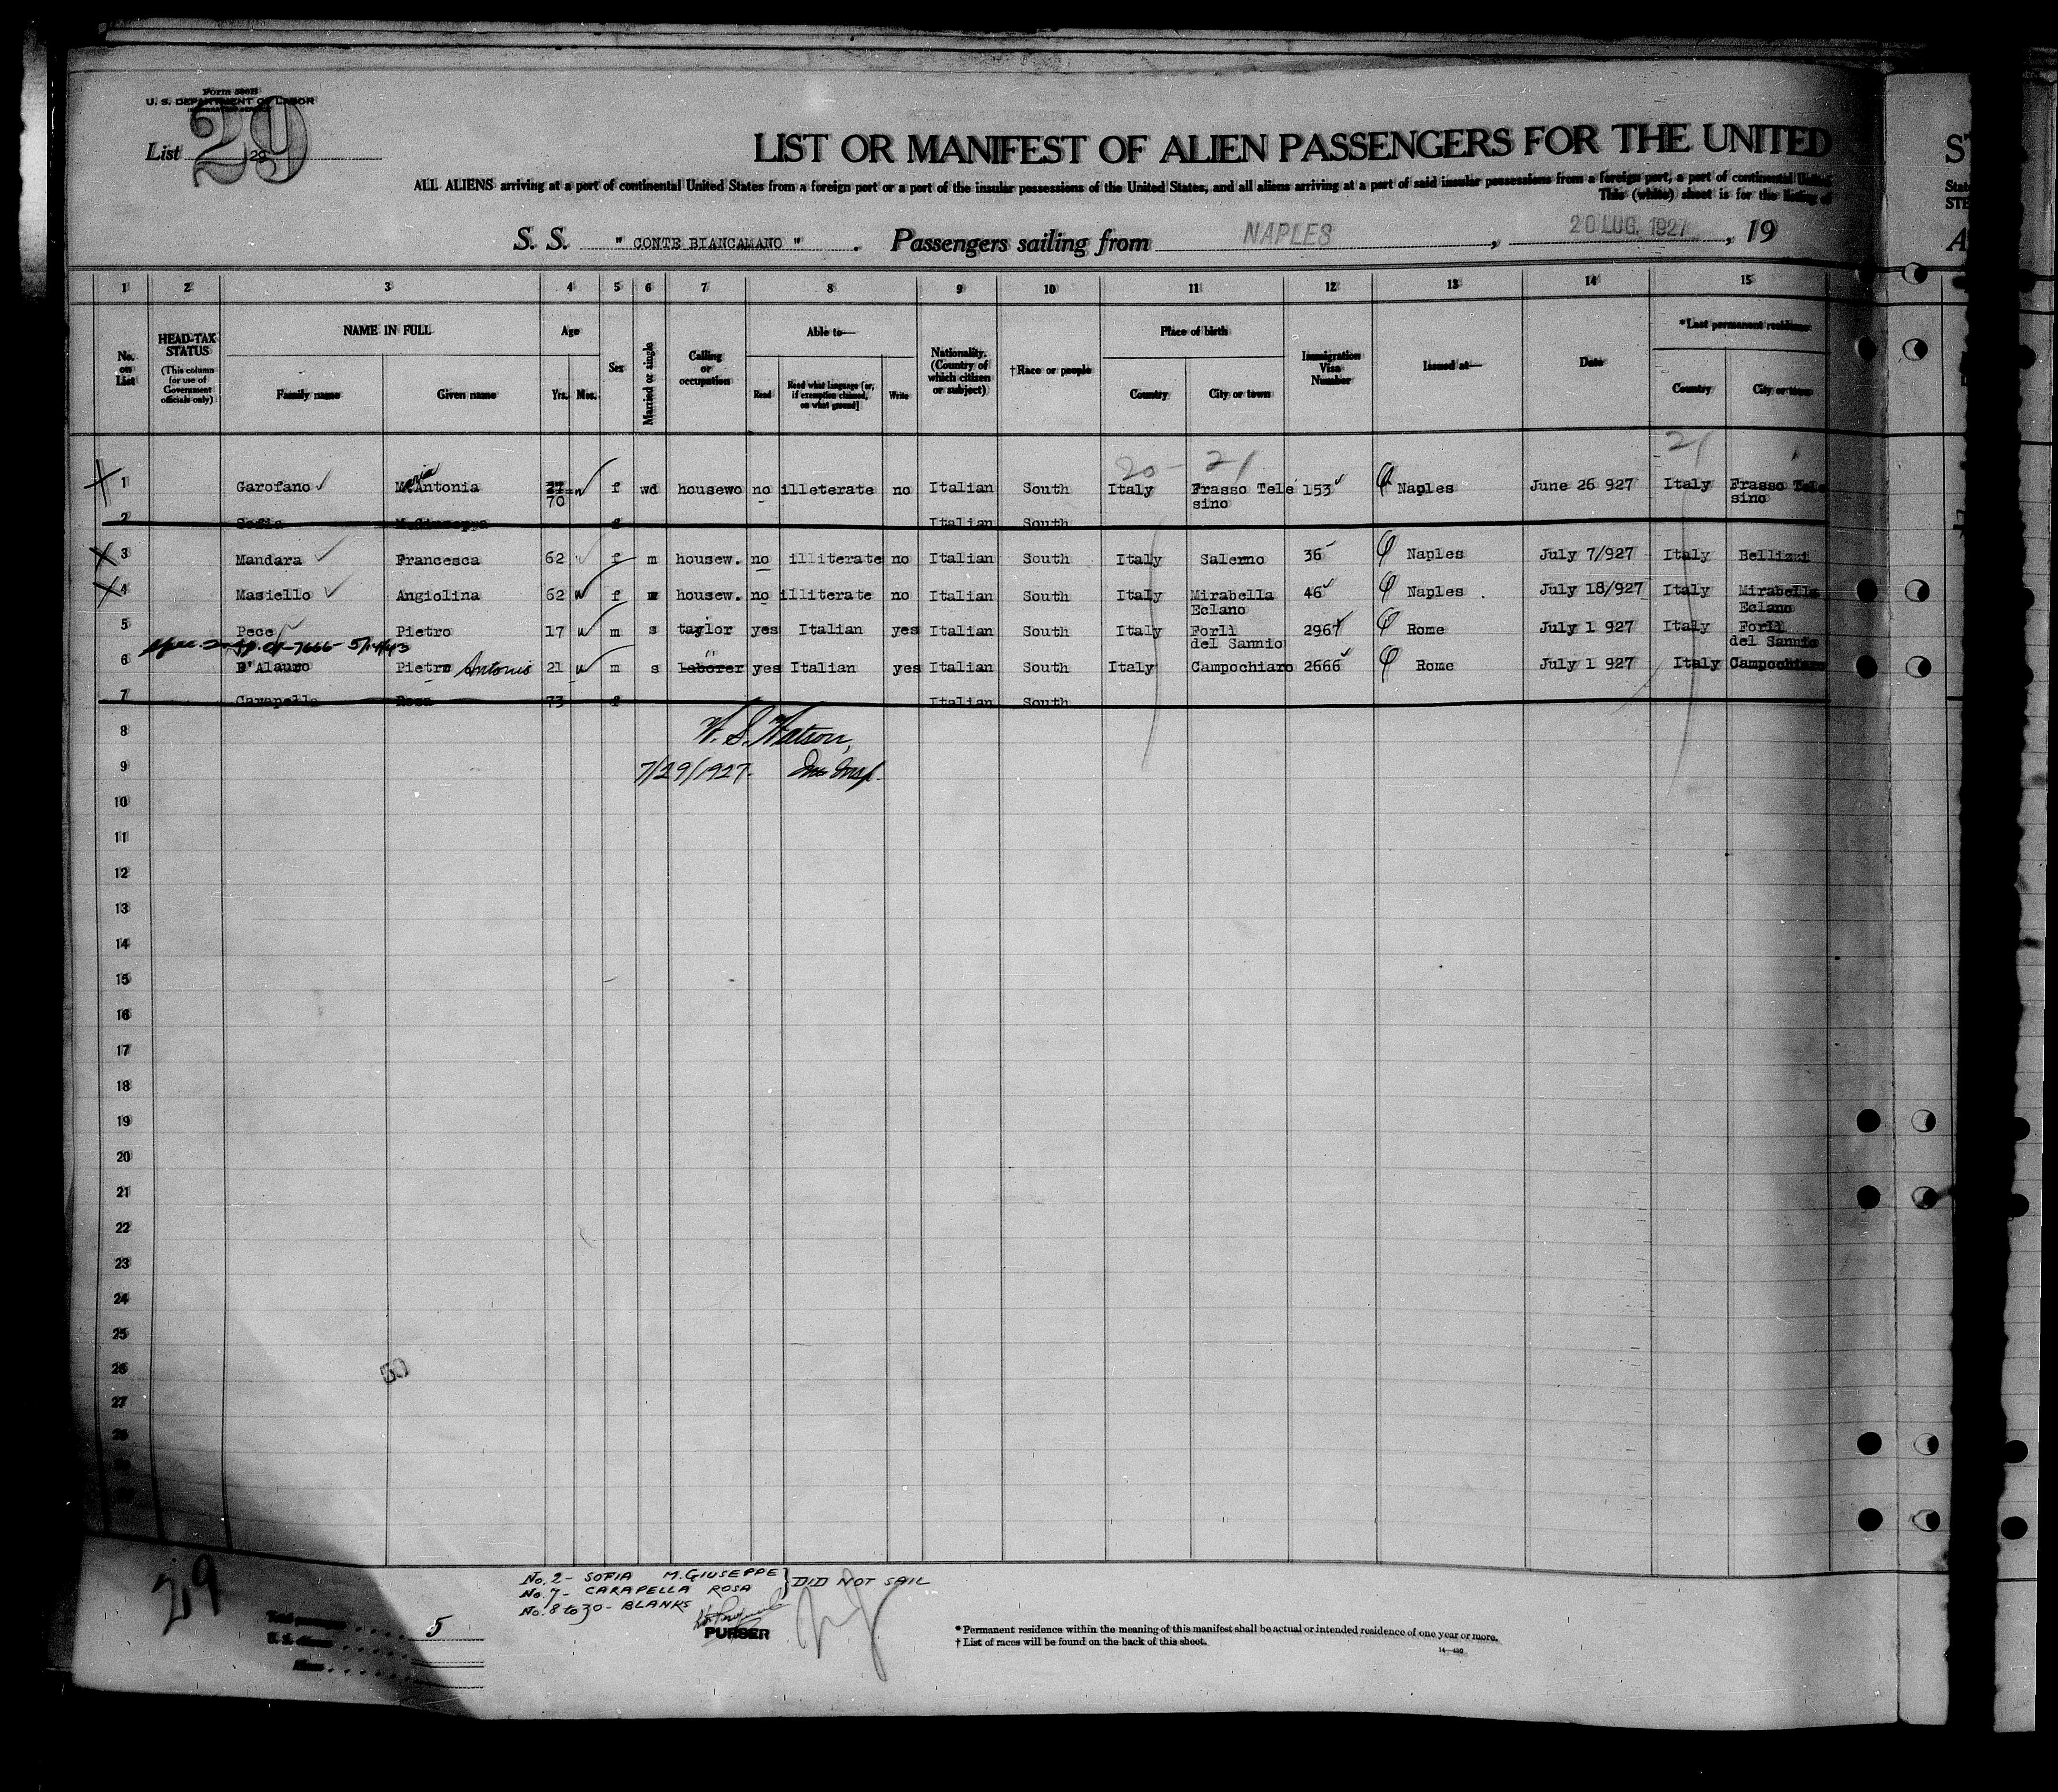 Form 500B
U. S. DEPARTMENT OF LABOR
List 29
29
LIST OR MANIFEST OF ALIEN PASSENGERS FOR THE UNITED
ALL ALIENS arriving at a port of continental United States from a foreign port or a port of the insular possessions of the United States, and all aliens arriving at a port of said insular possessions from a foreign port, a port of continental United
This (white) sheet is for the listing of
S. S. " CONTE BIANCAMANO " . Passengers sailing from NAPLES , 20 LUG. 1927 , 19
1 2 3 4 5 6 7 8 9 10 11 12 13 14 15
No. on List
HEAD-TAX STATUS (This column for use of Government officials only)
NAME IN FULL Family name Given name
Age Yrs. Mos.
Sex
Married or single
Calling or occupation
Able to— Read Read what language [or, if exemption claimed, on what ground] Write
Nationality. (Country of which citizen or subject)
†Race or people
Place of birth Country City or town
Immigration Visa Number
Issued at—
Date
*Last permanent residence Country City or town
20- 21 21
1 Garofano Maria Antonia 37 70 f wd housewo no illeterate no Italian South Italy Frasso Tele sino 153 Naples June 26 927 Italy Frasso Tele sino
2 Sofia M.Giuseppa f Italian South
3 Mandara Francesca 62 f m housew. no illiterate no Italian South Italy Salerno 36 Naples July 7/927 Italy Bellizzi
4 Masiello Angiolina 62 f housew. no illiterate no Italian South Italy Mirabella Eclano 46 Naples July 18/927 Italy Mirabella Eclano
5 Pece Pietro 17 m s taylor yes Italian yes Italian South Italy Forli del Sannio 2967 Rome July 1 927 Italy Forli del Sannio
6 D'Alauro Pietro Antonio 21 m s laborer yes Italian yes Italian South Italy Campochiaro 2666 Rome July 1 927 Italy Campochiaro
7 Carapella Rosa 73 f Italian South
8 W. S. Watson,
9 7/29/1927.
10
11
12
13
14
15
16
17
18
19
20
21
22
23
24
25
26
27
28
29
No. 2 - SOFIA M. GIUSEPPE } DID NOT SAIL
No. 7 - CARAPELLA ROSA
No. 8 to 30 - BLANKS
PURSER
Total passengers 5
U. S. citizens
Aliens
* Permanent residence within the meaning of this manifest shall be actual or intended residence of one year or more.
† List of races will be found on the back of this sheet.